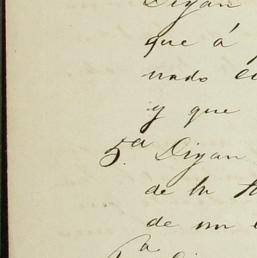 Digan
que á
nado
y que
5.ª Digan
de la
de un